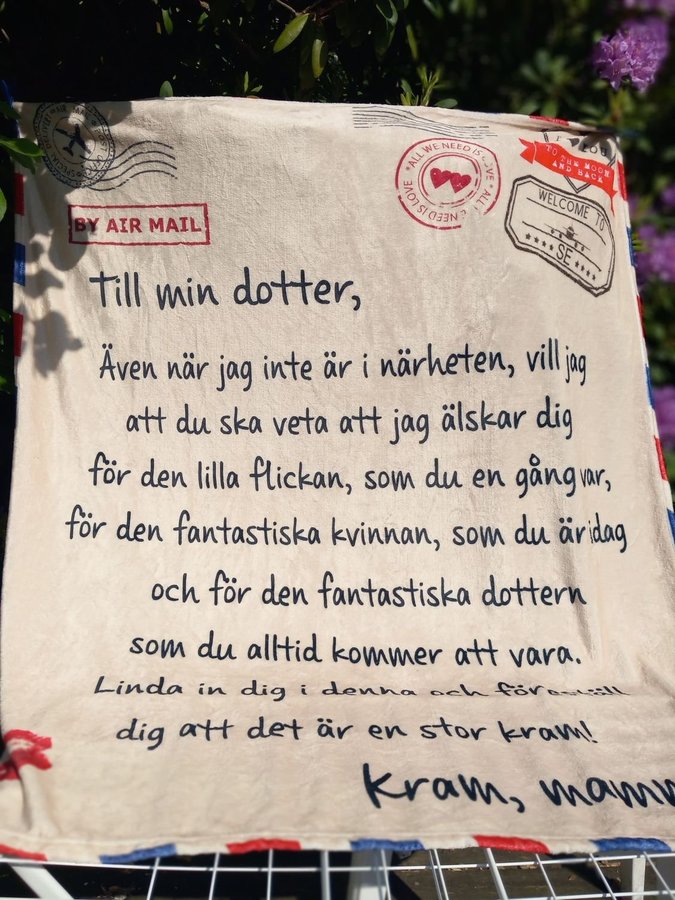 BY AIR MAIL
*ALL WE NEED IS LOVE *ALL WE NEED IS LOVE
TO THE MOON
AND BACK
WELCOME TO
SE
Till min dotter,
Även när jag inte är i närheten, vill jag
att du ska veta att jag älskar dig
för den lilla flickan, som du en gång var,
för den fantastiska kvinnan, som du är idag
och för den fantastiska dottern
som du alltid kommer att vara.
Linda in dig i denna och föreställ
dig att det är en stor kram!
Kram, mamm